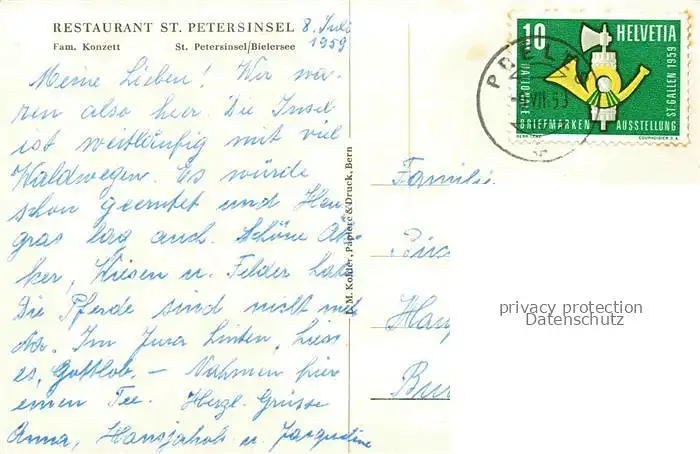 RESTAURANT ST. PETERSINSEL
Fam. Konzett St. Petersinsel/Bielersee
8. Juli
1959
Meine Lieben! Wir wa-
ren also hier. Die Insel
ist weitläufig mit viel
Waldwegen. Es würde
schon geerntet und Heu
gras lag auch. Schöne Äk-
ker, Wiesen u. Felder hat
Die Pferde sind nicht mehr
da. Im Jura hinten, liess
es, Gottlob. – Nahmen hier
einen Tee. Herzl. Grüsse
Anna, Hansjakob u. Jacqueline
M. Kohler, Papiere & Druck, Bern
10 HELVETIA
NATIONALE
BRIEFMARKEN AUSSTELLUNG
ST. GALLEN 1959
COURVOISIER S.A.
VII.59
Familie
privacy protection
Datenschutz